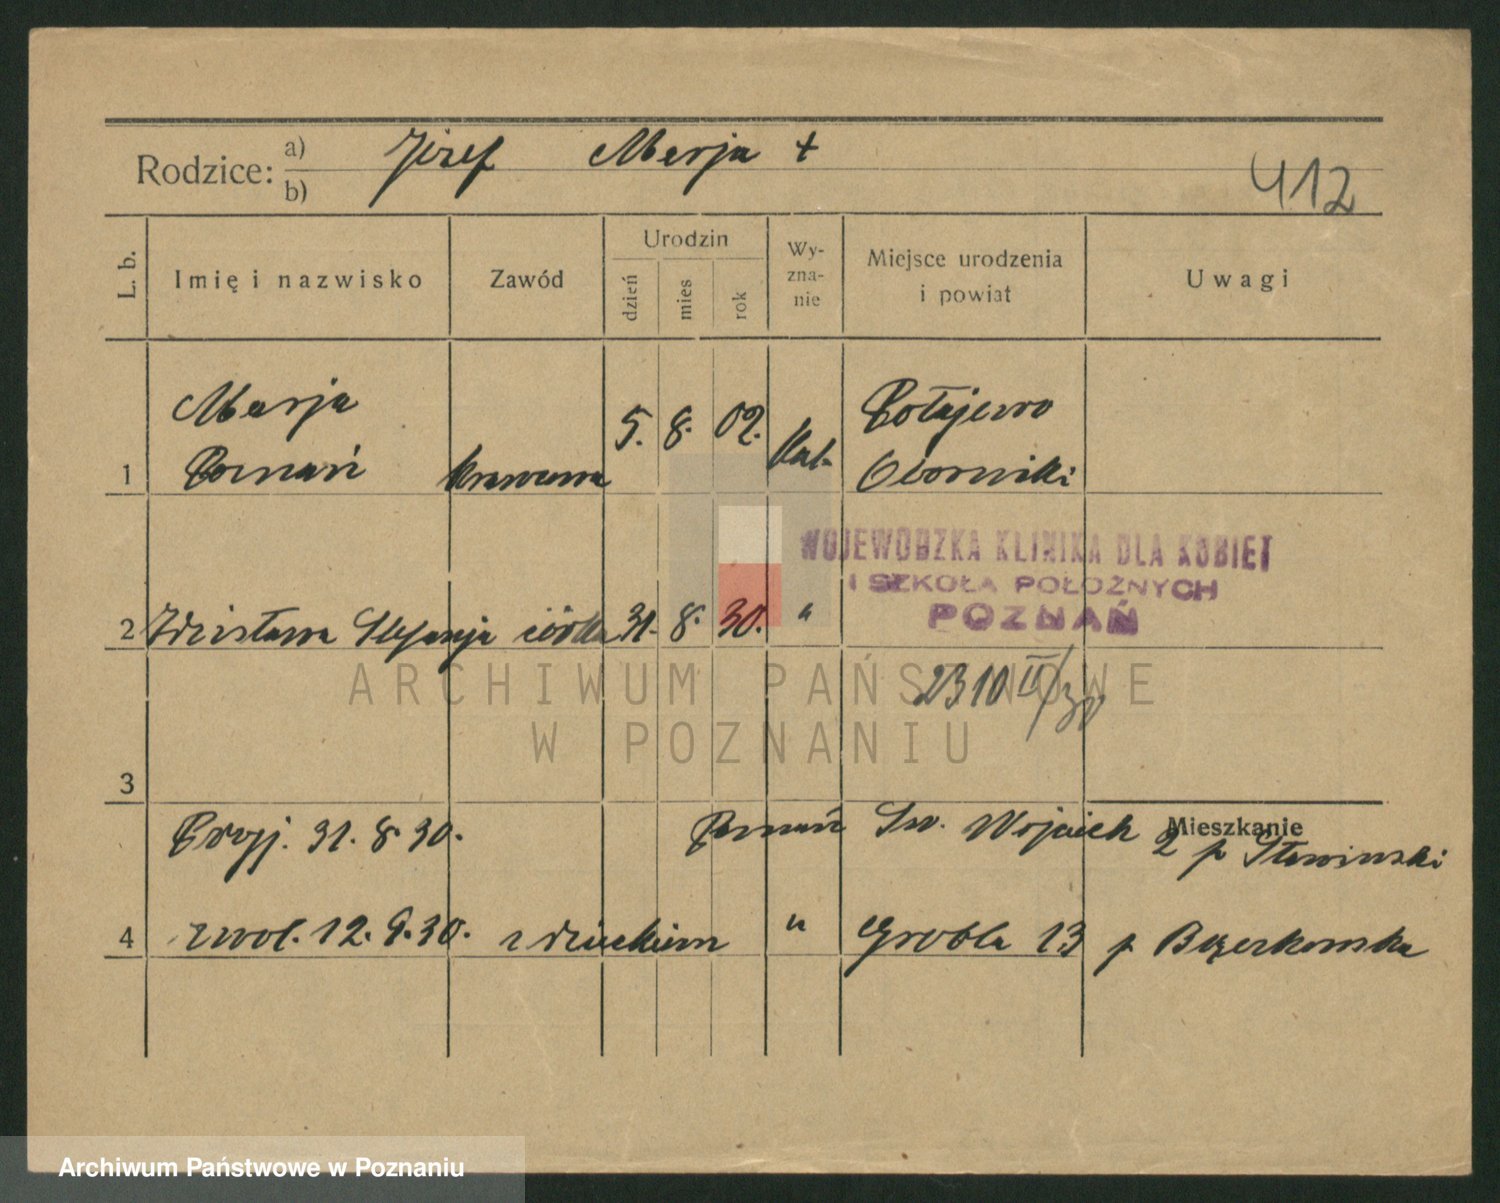 Rodzice: a) Józef Marja +
b)
412
L. b. Imię i nazwisko Zawód Urodzin dzień mies rok Wy-zna-nie Miejsce urodzenia i powiat Uwagi
Marja 5. 8. 02. Połajewo
1 Poznań Krawcowa Kat. Oborniki
WOJEWÓDZKA KLINIKA DLA KOBIET
I SZKOŁA POŁOŻNYCH
POZNAŃ
2 Zdzisława Stefanja córka 31. 8. 30. "
2310 II/30
ARCHIWUM PAŃSTWOWE
W POZNANIU
3
Mieszkanie
Przyj. 31. 8 30. Poznań Św. Wojciech 2 p Sławinski
4 zwol. 12. 9. 30. z dzieckiem " Grobla 13 p. Bączkowska
Archiwum Państwowe w Poznaniu